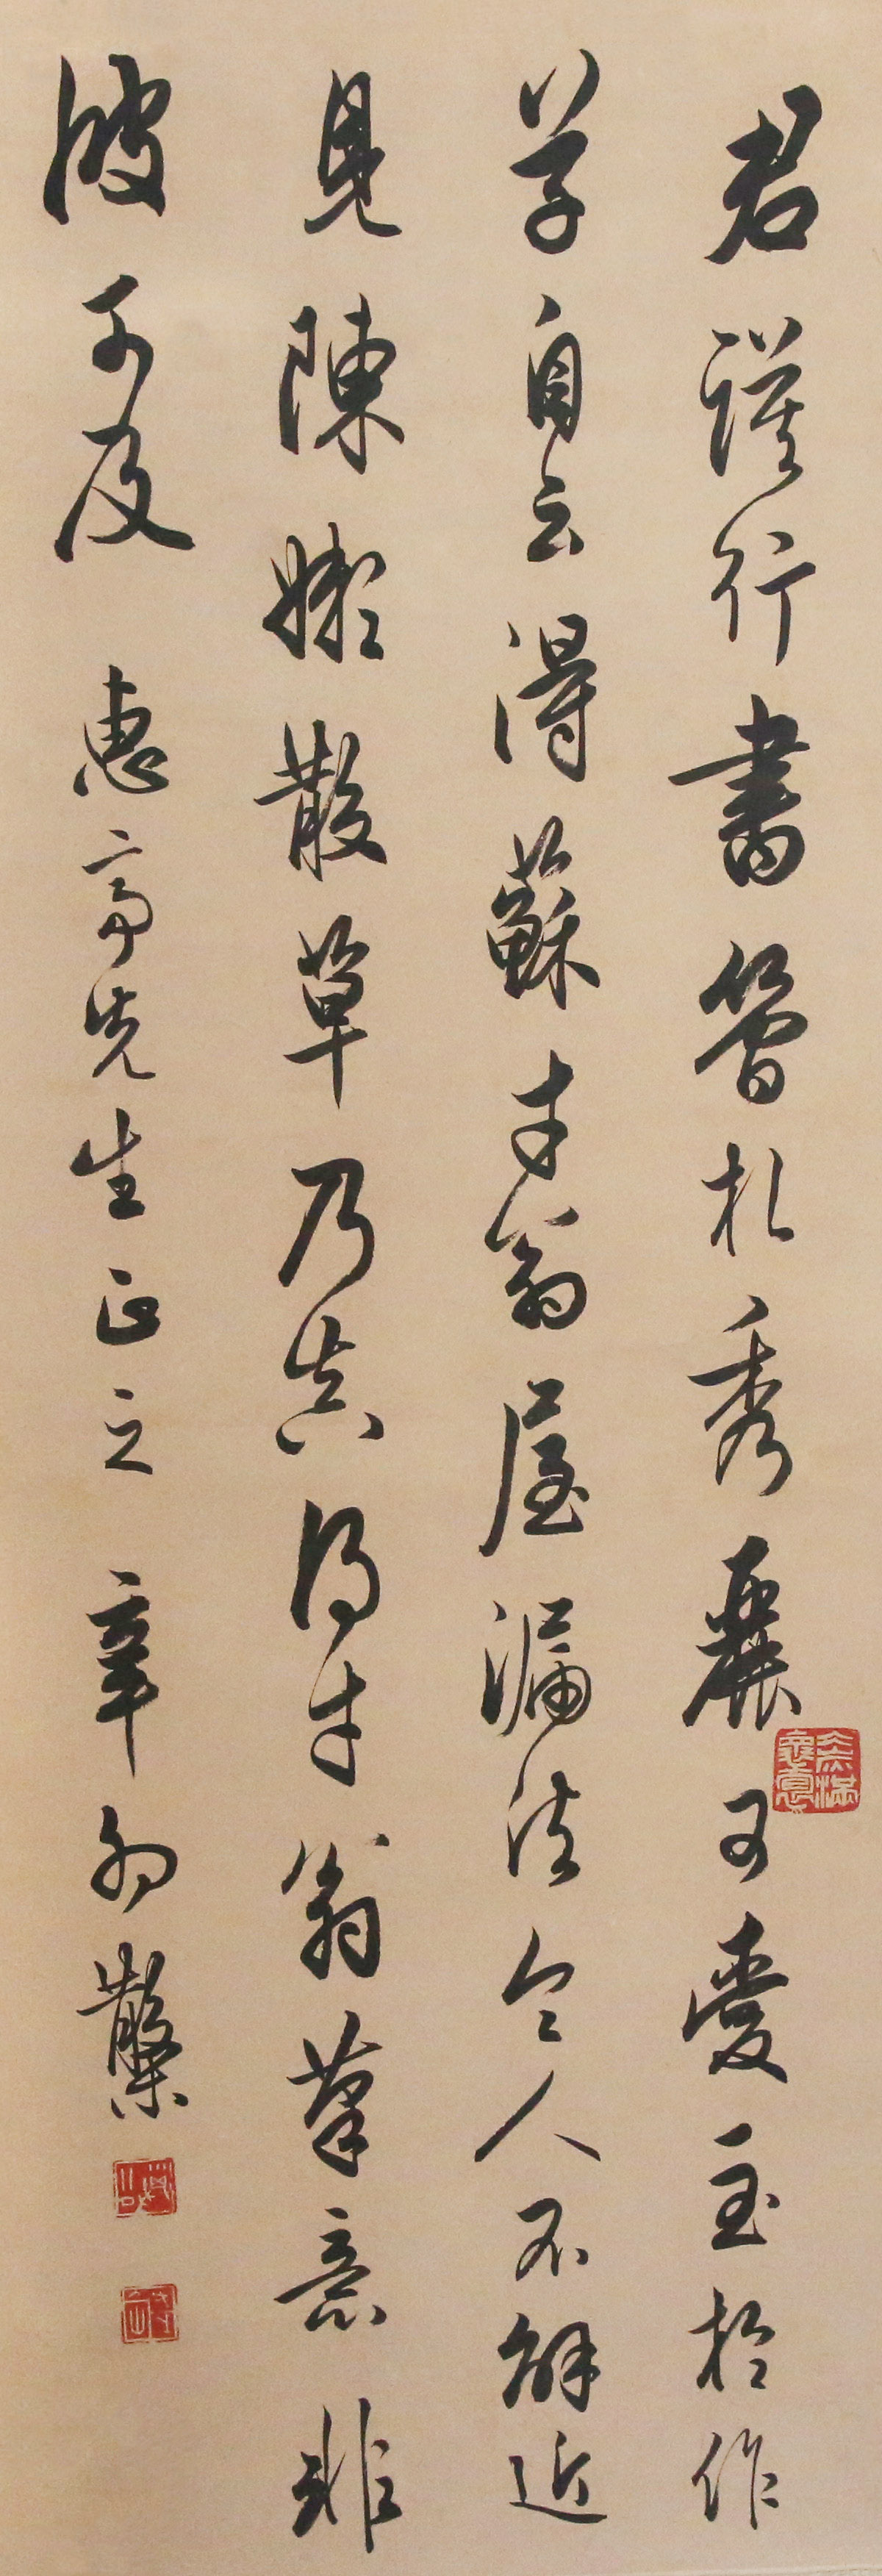 君謨行書簡札秀麗可愛至於作
草自云得蘇才翁屋漏法令人不解近
見陳嬾散草乃真得才翁筆意非
彼可及 惠亭先生正之